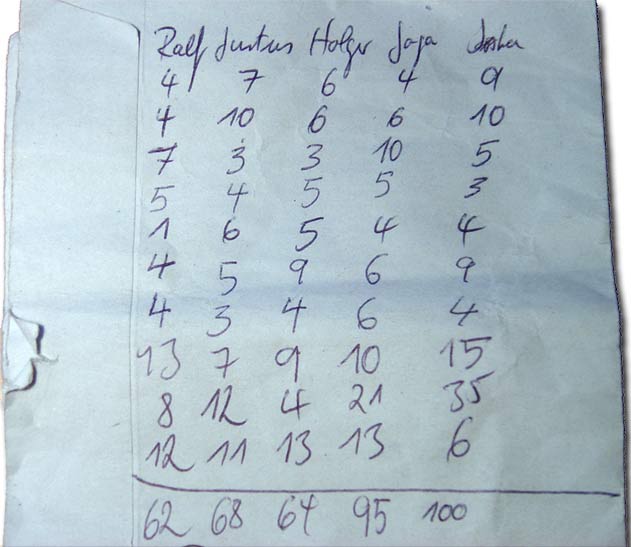 Ralf Justus Holger Jaja
4 7 6 4 9
4 10 6 6 10
7 3 3 10 5
5 4 5 5 3
1 6 5 4 4
4 5 9 6 9
4 3 4 6 4
13 7 9 10 15
8 12 4 21 35
12 11 13 13 6
62 68 64 95 100